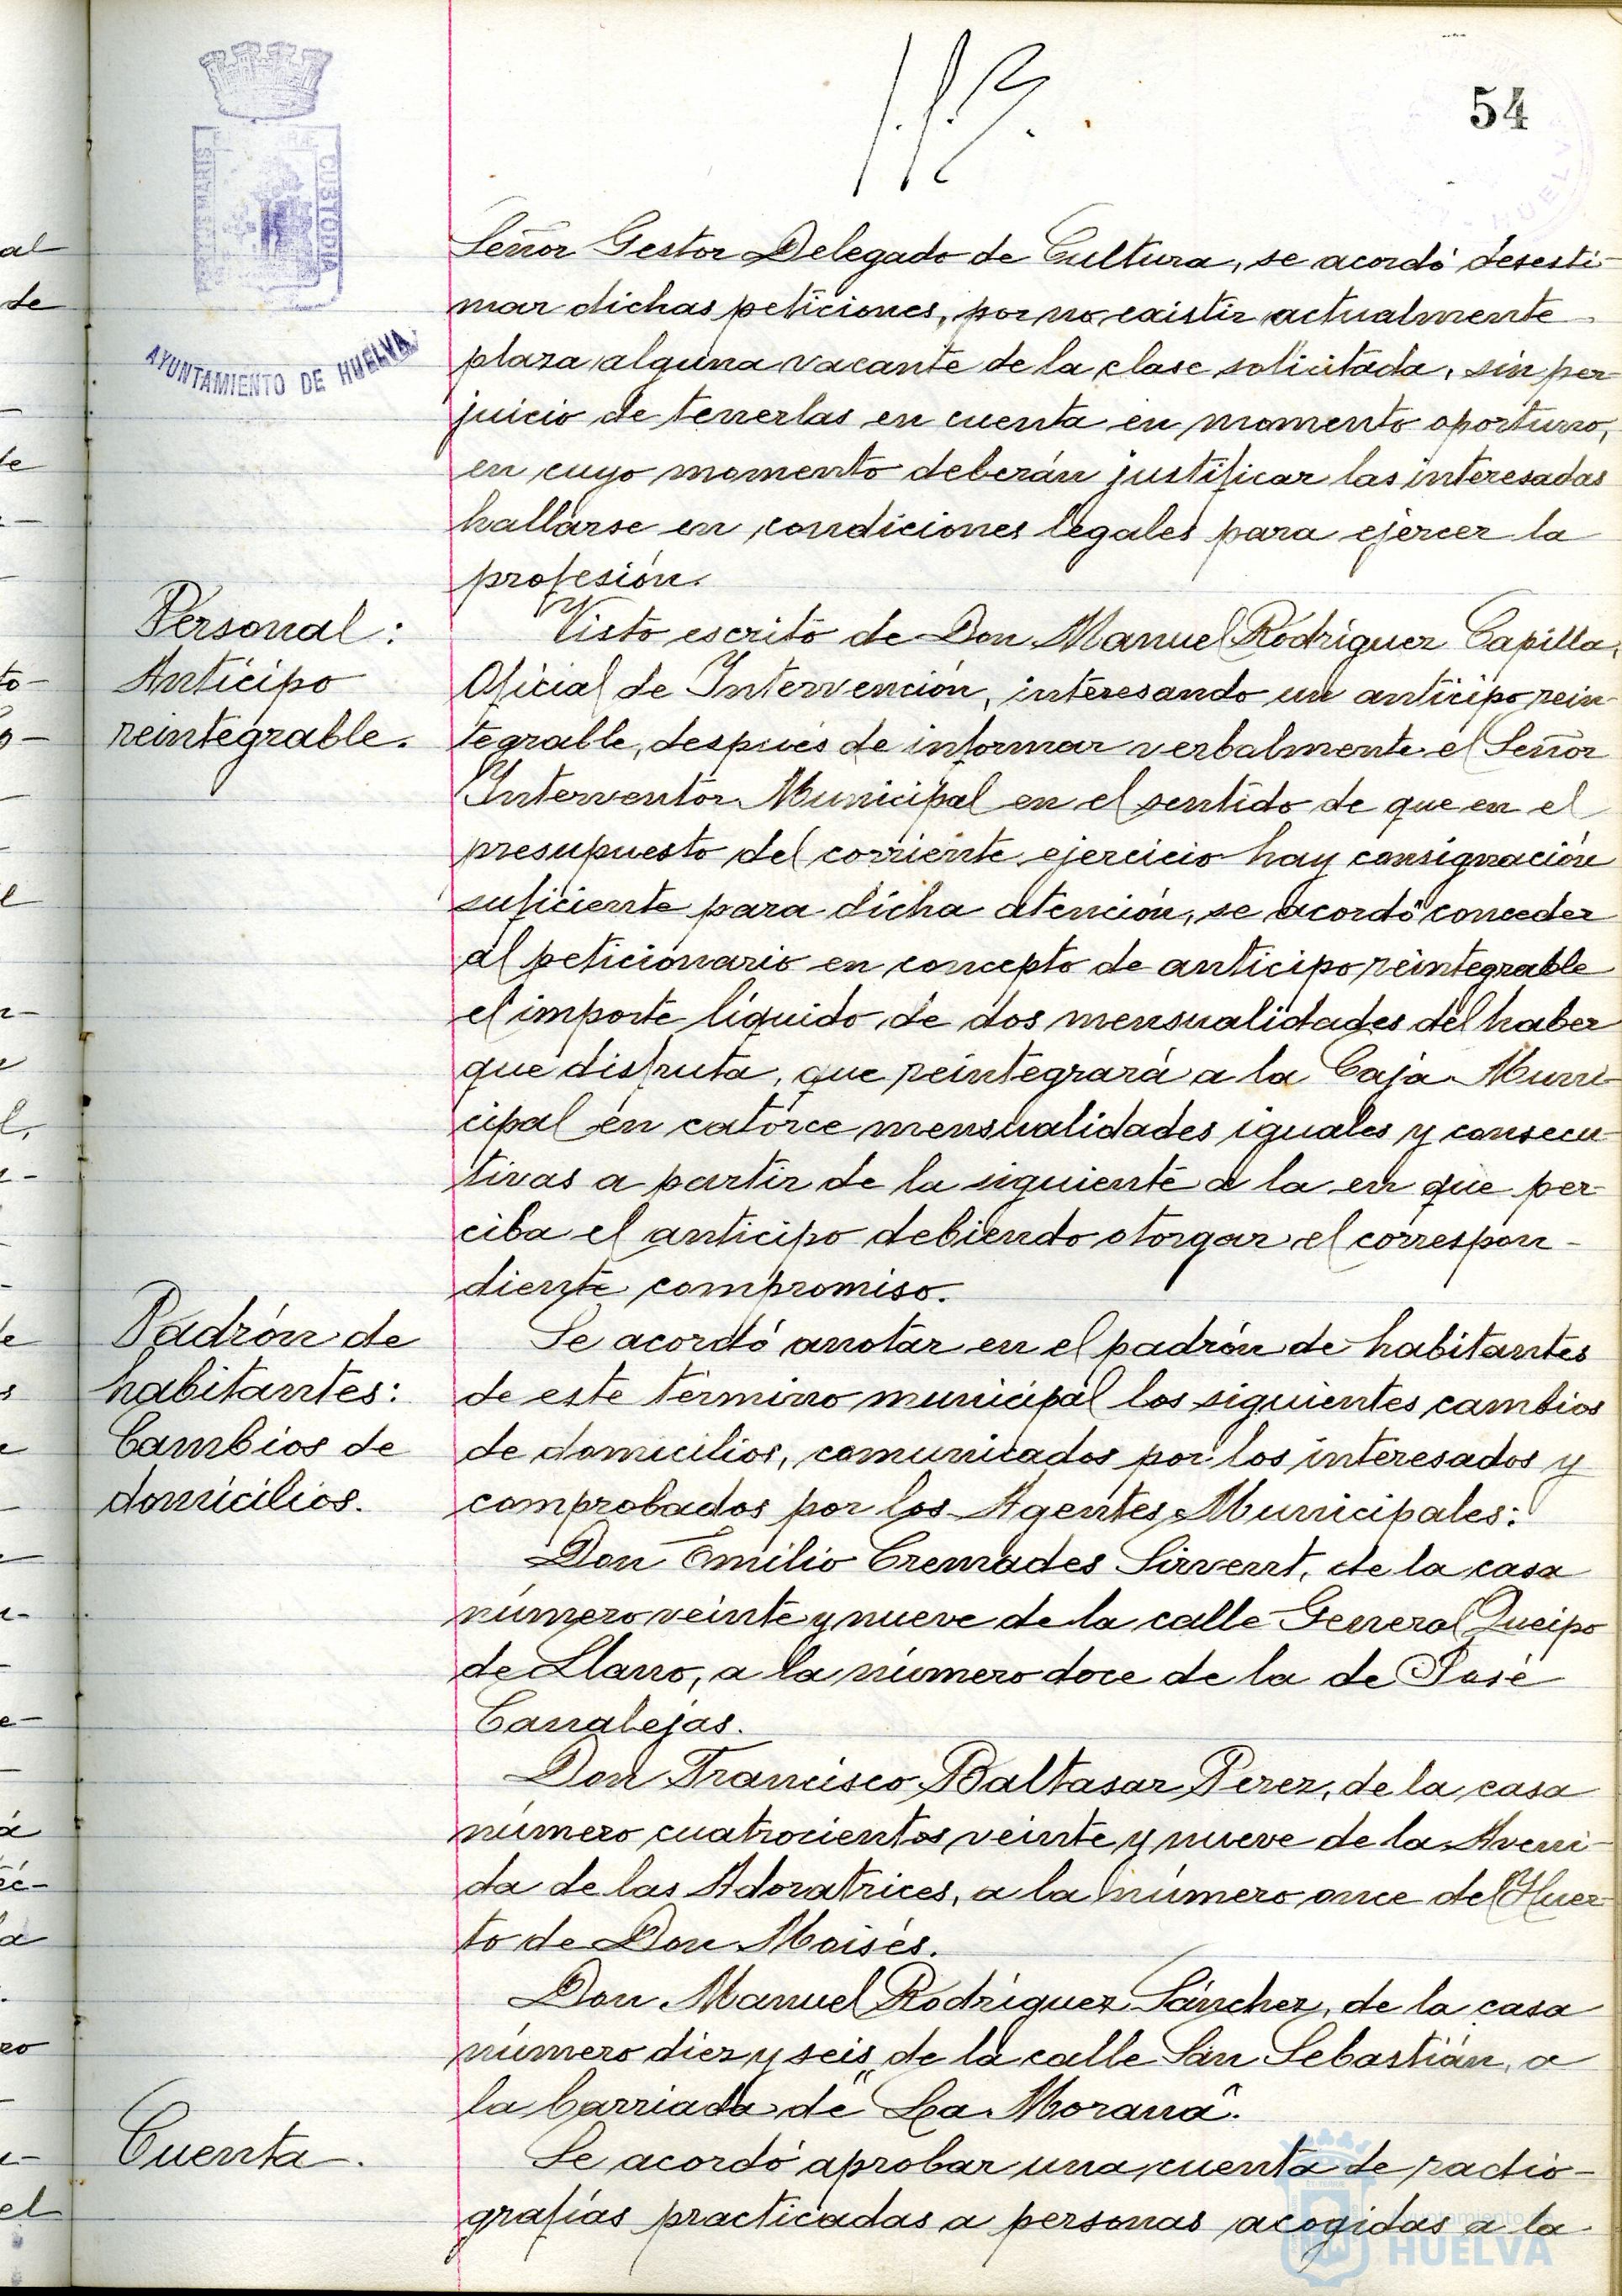 54
PORTUS MARIS
CUSTODIA
AYUNTAMIENTO DE HUELVA
HUELVA
Señor Gestor Delegado de Cultura, se acordó desesti-
mar dichas peticiones, por no existir actualmente
plaza alguna vacante de la clase solicitada, sin per-
juicio de tenerlas en cuenta en momento oportuno,
en cuyo momento deberán justificar las interesadas
hallarse en condiciones legales para ejercer la
profesión.
Personal:
Anticipo
reintegrable.
Visto escrito de Don Manuel Rodríguez Capilla,
Oficial de Intervención, interesando un anticipo rein-
tegrable, después de informar verbalmente el Señor
Interventor Municipal en el sentido de que en el
presupuesto del corriente ejercicio hay consignación
suficiente para dicha atención, se acordó conceder
al peticionario en concepto de anticipo reintegrable
el importe líquido de dos mensualidades del haber
que disfruta, que reintegrará a la Caja Muni-
cipal en catorce mensualidades iguales y consecu-
tivas a partir de la siguiente a la en que per-
ciba el anticipo debiendo otorgar el correspon-
diente compromiso.
Padrón de
habitantes:
Cambios de
domicilios.
Se acordó anotar en el padrón de habitantes
de este término municipal los siguientes cambios
de domicilios, comunicados por los interesados y
comprobados por los Agentes Municipales:
Don Emilio Cremades Sirvent, de la casa
número veinte y nueve de la calle General Queipo
de Llano, a la número doce de la de José
Canalejas.
Don Francisco Baltasar Perez, de la casa
número cuatrocientos veinte y nueve de la Aveni-
da de las Adoratrices, a la número once del Huer-
to de Don Moisés.
Don Manuel Rodríguez Sánchez, de la casa
número diez y seis de la calle San Sebastián, a
la barriada de "La Morana".
Cuenta.
Se acordó aprobar una cuenta de radio-
grafías practicadas a personas acogidas a la
Ayuntamiento de
HUELVA